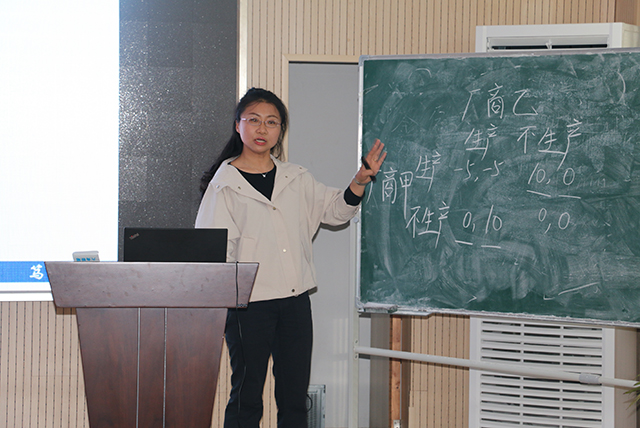 厂商乙
生产 不生产
厂商甲
生产 -5,-5 10,0
不生产 0,10 0,0
笃